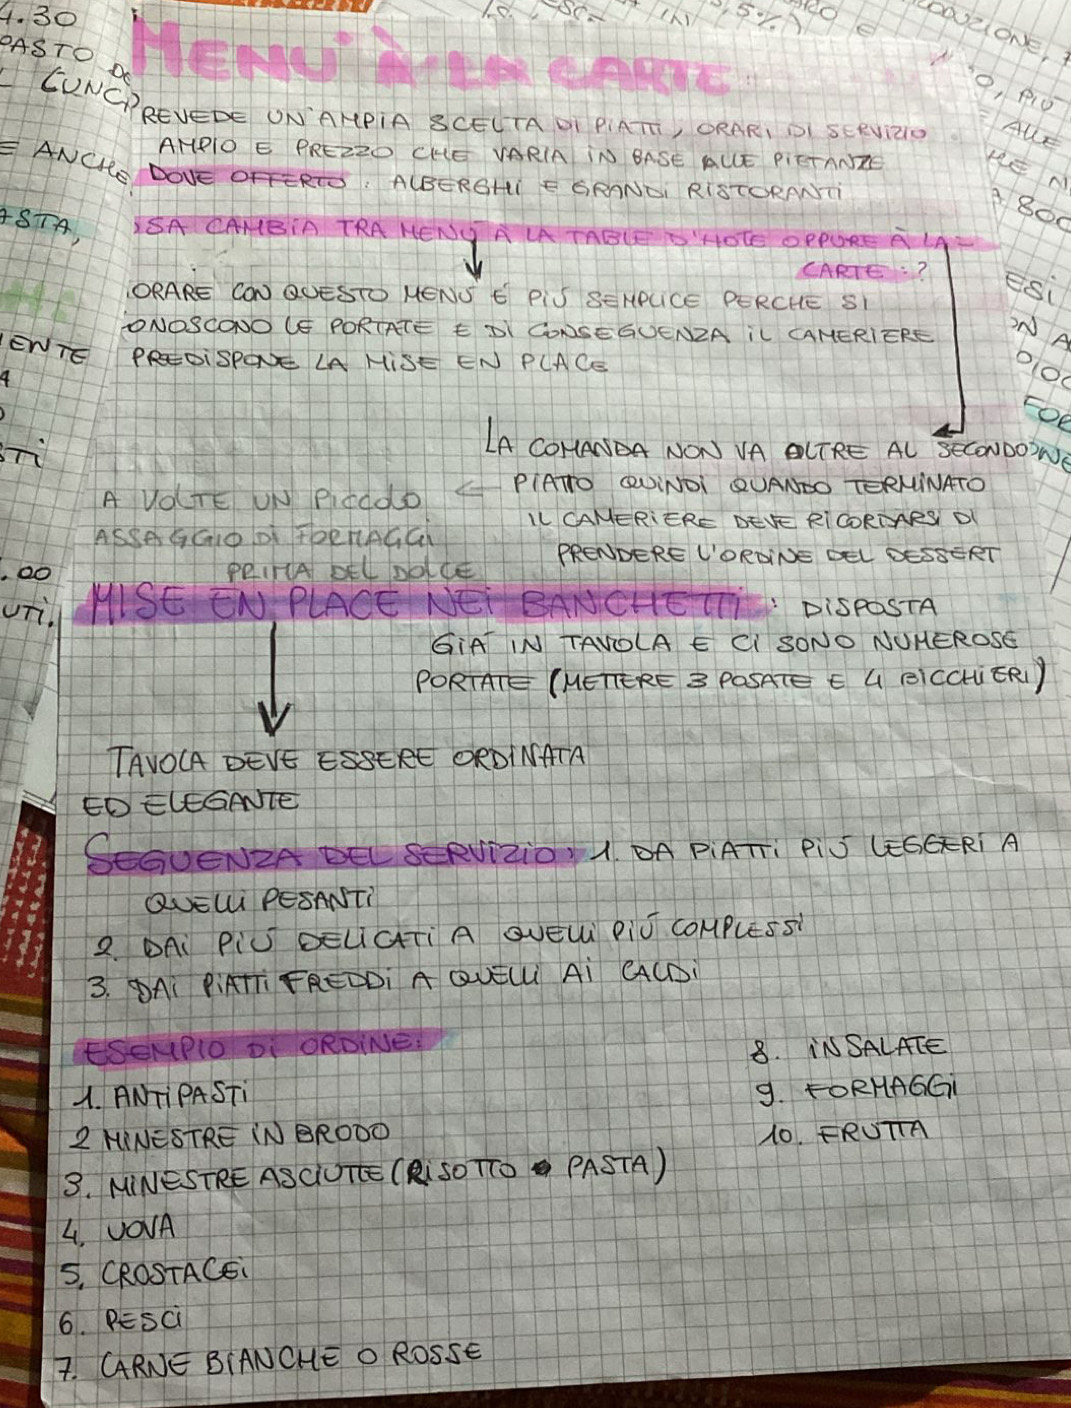 MENU' À LA CARTE:
PREVEDE UN'AMPIA SCELTA DI PIATTI, ORARI DI SERVIZIO
AMPIO E PREZZO CHE VARIA IN BASE ALLE PIETANZE
DOVE OFFERTO: ALBERGHI E GRANDI RISTORANTI
SA CAMBIA TRA MENÙ À LA TABLE D'HOTE OPPURE À LA
CARTE:?
ORARE CON QUESTO MENÙ É PIÙ SEMPLICE PERCHE SI
ONOSCONO LE PORTATE E DI CONSEGUENZA IL CAMERIERE
PREDISPONE LA MISE EN PLACE
LA COMANDA NON VA OLTRE AL SECONDO
PIATTO QUINDI QUANDO TERMINATO
IL CAMERIERE DEVE RICORDARSI DI
PRENDERE L'ORDINE DEL DESSERT
A VOLTE UN PICCOLO
ASSAGGIO DI FORMAGGI
PRIMA DEL DOLCE
MISE EN PLACE NEI BANCHETTI: DISPOSTA
GIÀ IN TAVOLA E CI SONO NUMEROSE
PORTATE (METTERE 3 POSATE E 4 BICCHIERI)
TAVOLA DEVE ESSERE ORDINATA
ED ELEGANTE
SEGUENZA DEL SERVIZIO: 1. DA PIATTI PIÙ LEGGERI A
QUELLI PESANTI
2. DAI PIÙ DELICATI A QUELLI PIÙ COMPLESSI
3. DAI PIATTI FREDDI A QUELLI AI CALDI
ESEMPIO DI ORDINE:
1. ANTIPASTI
2 MINESTRE IN BRODO
3. MINESTRE ASCIUTTE (RISOTTO PASTA)
4. UOVA
5. CROSTACEI
6. PESCI
7. CARNE BIANCHE O ROSSE
8. INSALATE
9. FORMAGGI
10. FRUTTA
4.30
PASTO DE
E ANCHE
ASTA,
ENTE
STI
.00
UTI.
O, PIÙ
ALLE
800
ESI